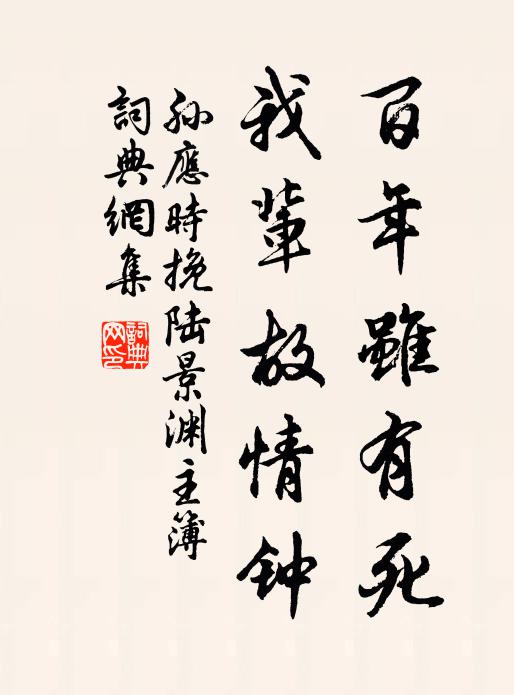 百年雖有死
我輩故情钟
孙應時挽陆景渊主簿
詞典網集
詞典网印